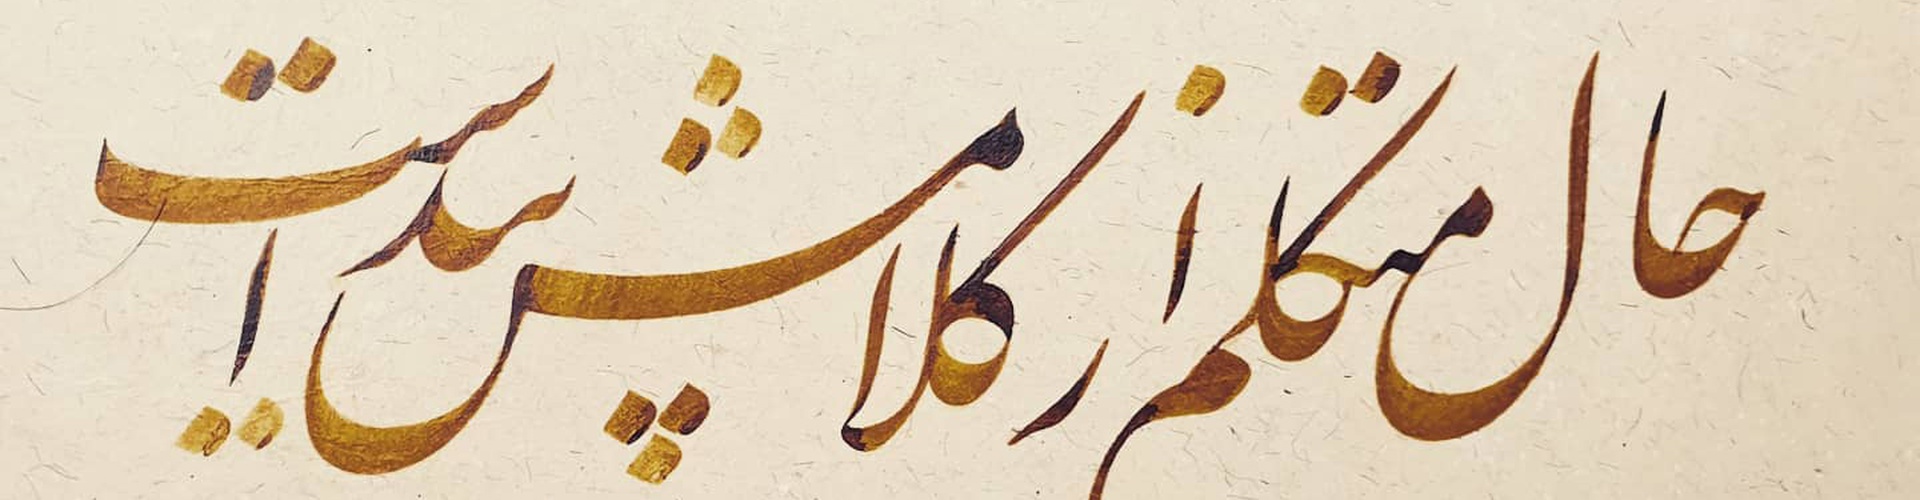 حال متکلم از کلامش پیداست